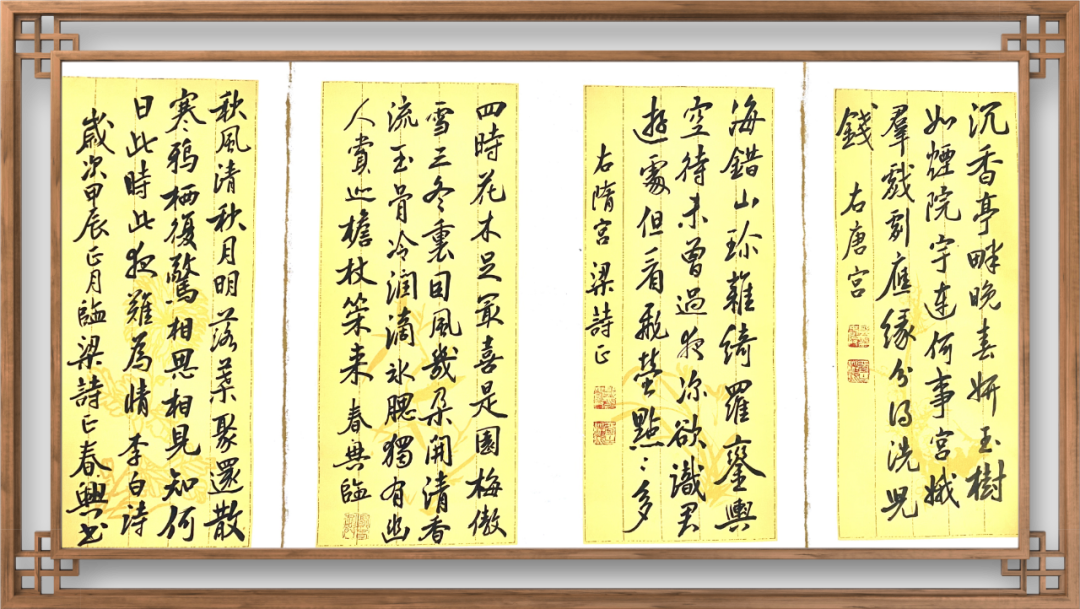 沉香亭畔晚春妍玉樹
如煙院宇連何事宮娥
羣戲劇應緣分得洗兒
錢 右唐宮
海錯山珍雜綺羅鑾輿
空待未曾過夜涼欲識君
遊處但看飛螢點〻多
右隋宮 梁詩正
四時花木足冣喜是園梅傲
雪三冬裏因風幾朵開清香
流玉骨冷潤滴冰腮獨有幽
人賞巡檐杖策來 春興臨
秋風清秋月明落葉聚還散
寒鴉栖復驚相思相見知何
日此時此夜難為情李白詩
歲次甲辰正月臨梁詩正春興书